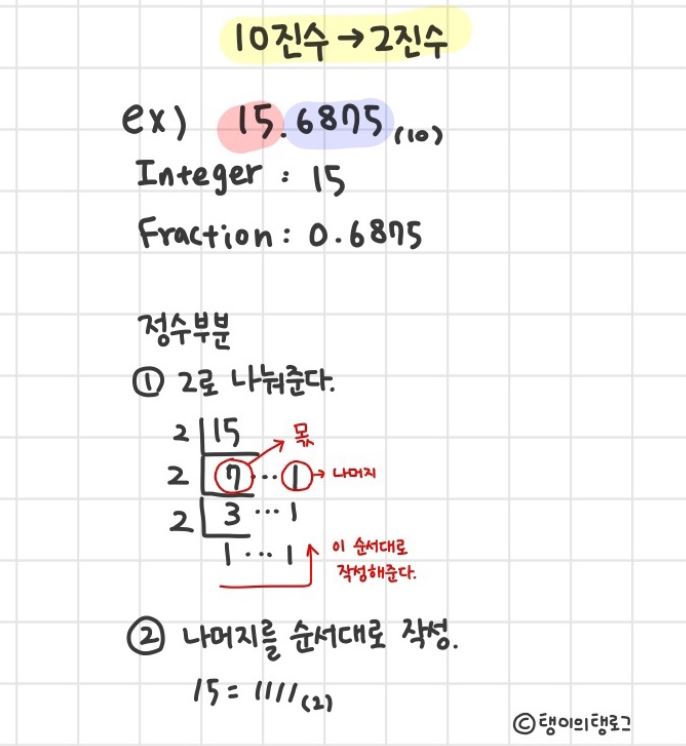 10진수→2진수
ex) 15.6875(10)
Integer : 15
Fraction : 0.6875
정수부분
① 2로 나눠준다.
2 15 몫
2 7 ··· 1 → 나머지
2 3 ··· 1
1 ··· 1 이 순서대로
작성해준다.
② 나머지를 순서대로 작성.
15 = 1111(2)
©탱이의탱로그